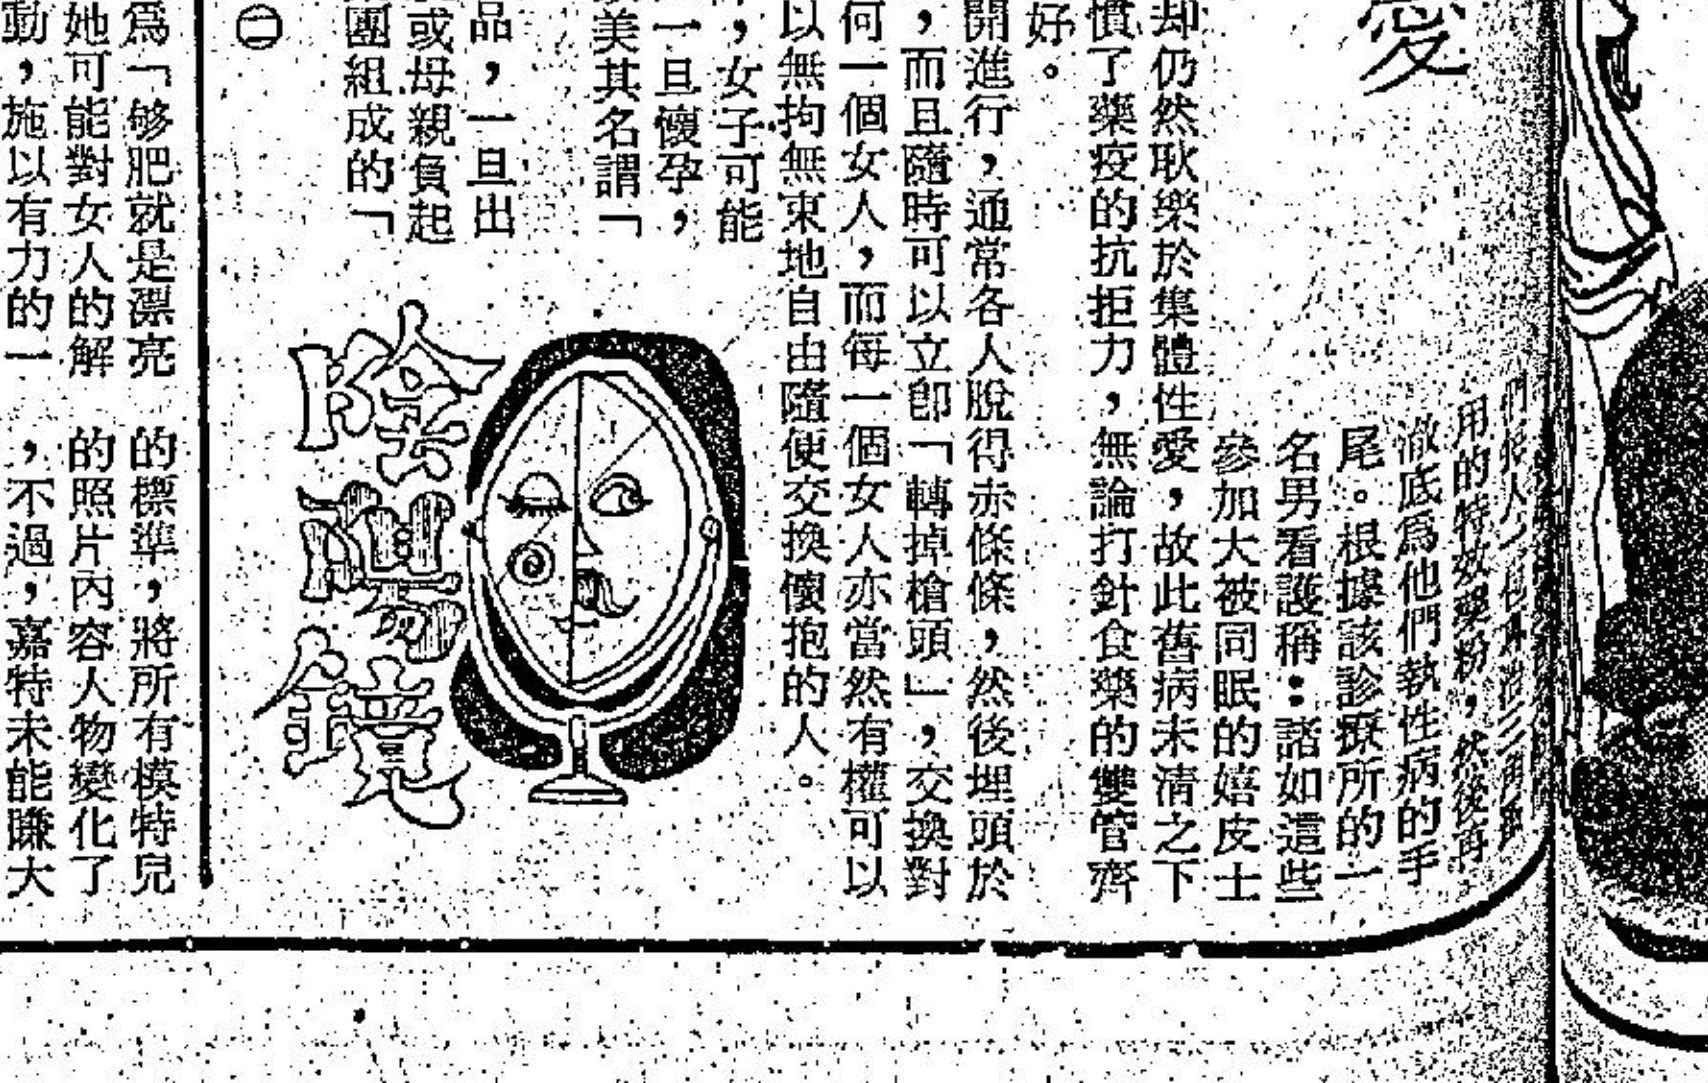 愛
用的特效藥粉，然後再
澈底爲他們執性病的手
尾。根據該診療所的一
名男看護稱：諸如這些
參加大被同眠的嬉皮士
却仍然耿樂於集體性愛，故此舊病未清之下
慣了藥疫的抗拒力，無論打針食藥的雙管齊
好。
開進行，通常各人脫得赤條條，然後埋頭於
，而且隨時可以立卽「轉掉槍頭」，交換對
何一個女人，而每一個女人亦當然有權可以
以無拘無束地自由隨便交換懷抱的人。
，女子可能
一旦懷孕，
美其名謂「
品，一旦出
或母親負起
團組成的「
陰陽鏡
㊁
爲「够肥就是漂亮
她可能對女人的解
動，施以有力的一
的標準，將所有模特兒
的照片內容人物變化了
，不過，嘉特未能賺大